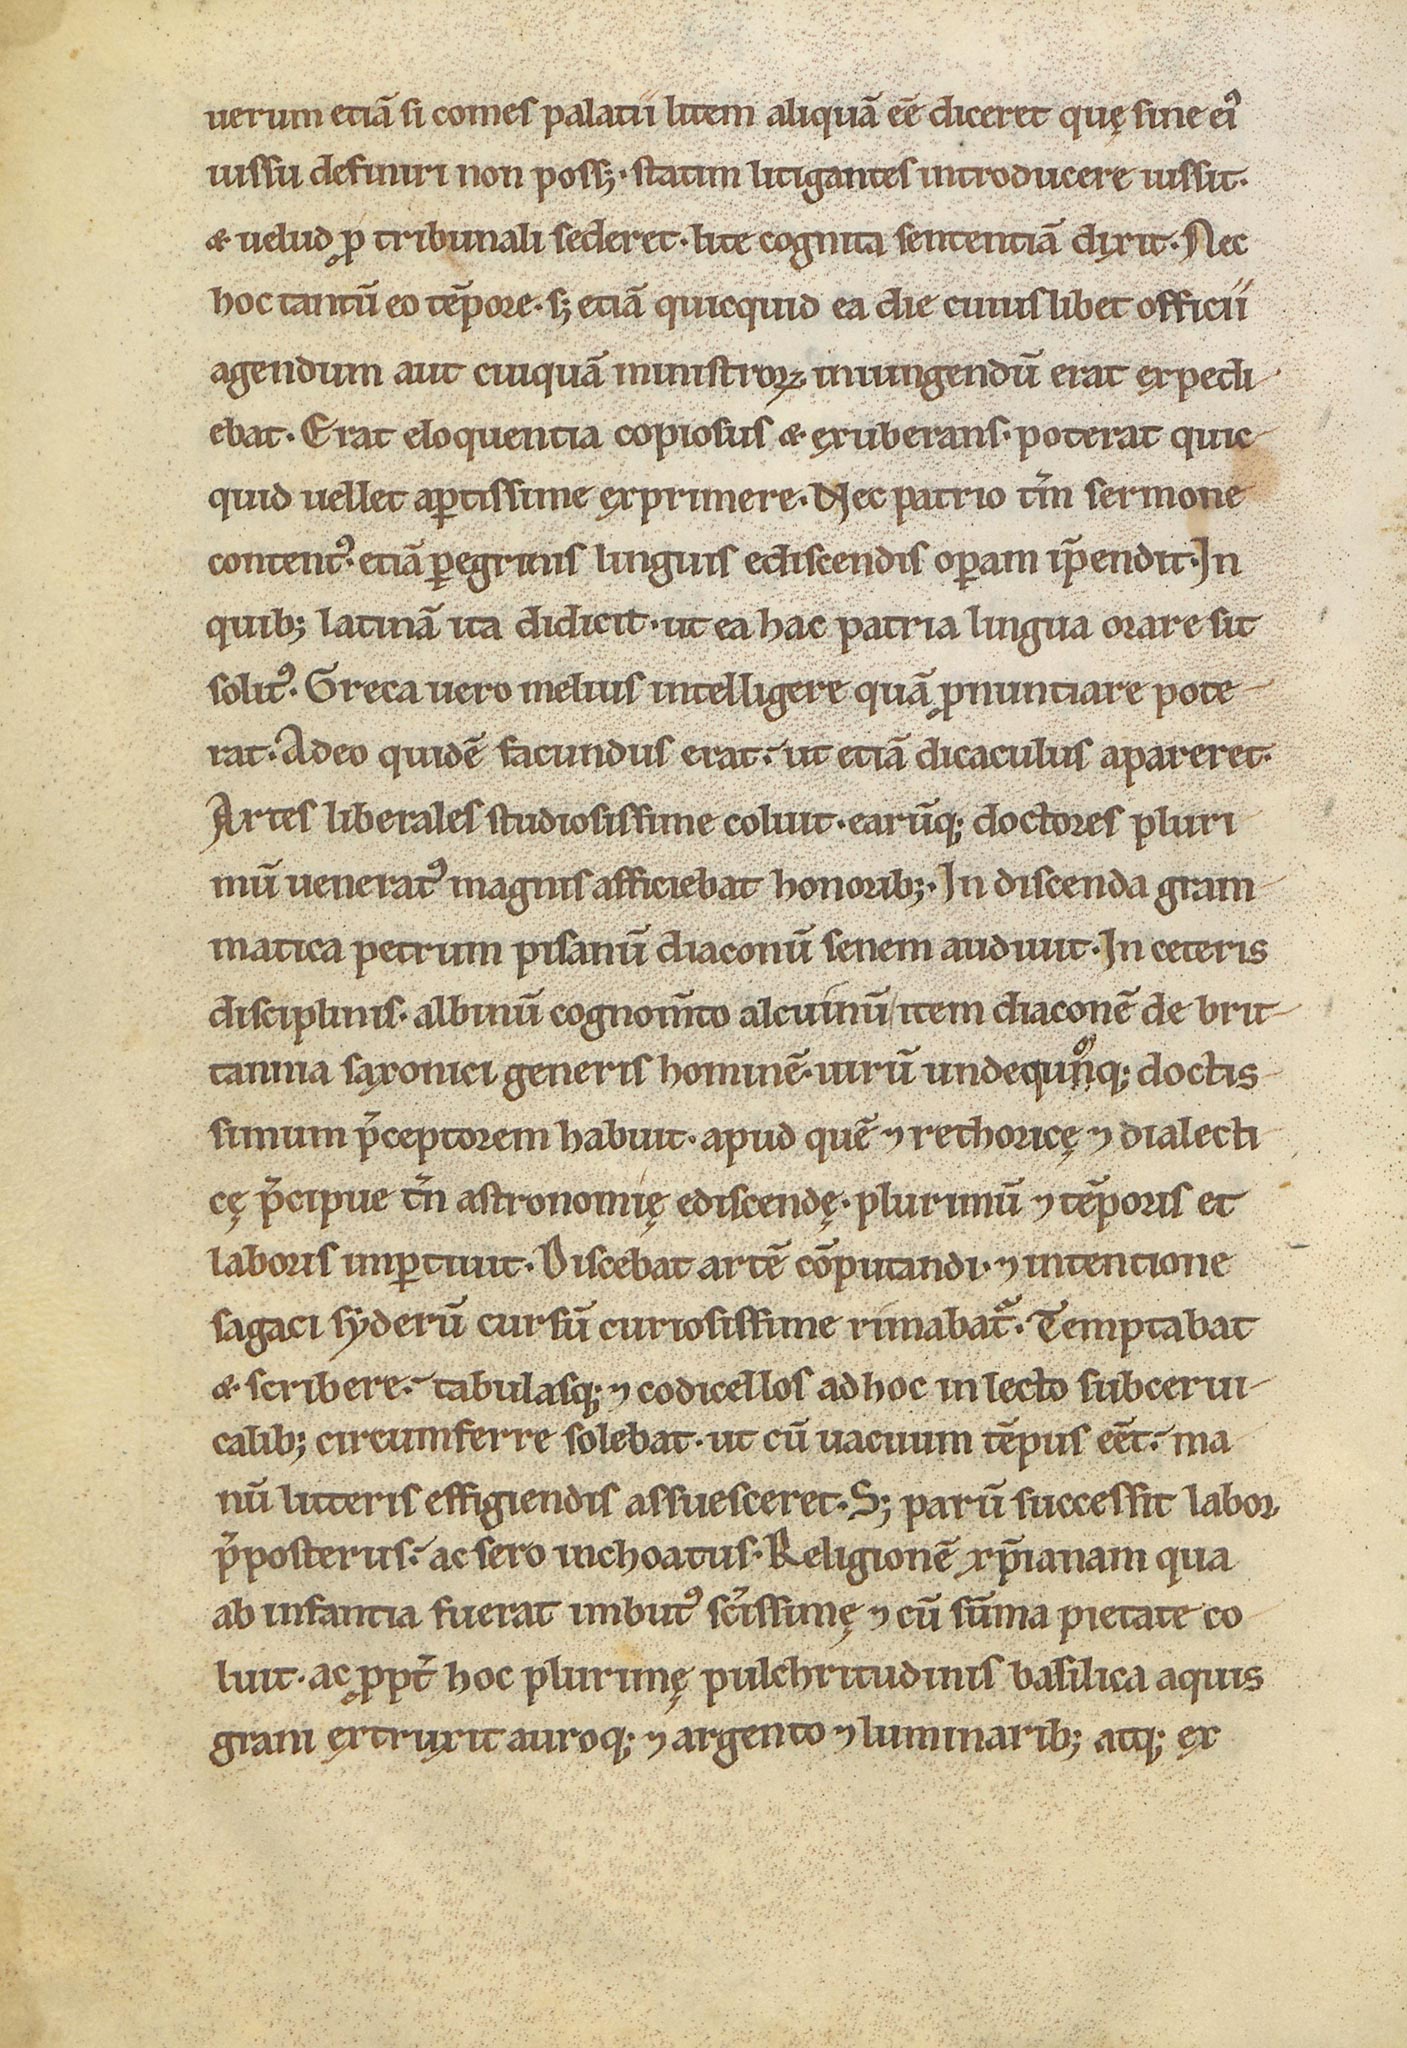 uerum etiā si comes palatii litem aliquā eē diceret quę sine eiꝰ
iussu definiri non possꝫ· statim litigantes introducere iussit·
& uelud ꝓ tribunali sederet· lite cognita sententiā dixit· Nec
hoc tantū eo tēpore· sꝫ etiā quicquid ea die cuius libet officii
agendum aut cuiquā ministroꝝ iniungendū erat expedi
ebat· Erat eloquentia copiosus & exuberans· poterat quic
quid uellet aꝑtissime exprimere· Nec patrio tm̄ sermone
contentꝰ· etiā ꝑegrinis linguis ediscendis oꝑam īpendit· In
quibꝫ latinā ita didicit· ut ea hac patria lingua orare sit
solitꝰ· Greca uero melius intelligere quā ꝓnuntiare pote
rat· Adeo quidē facundus erat· ut etiā dicaculus apareret·
Artes liberales studiosissime coluit· earūqꝫ doctores pluri
mū ueneratꝰ magnis afficiebat honoribꝫ· In discenda gram
matica petrum pisanū diaconū senem audiuit· In ceteris
disciplinis· albinū cognom̄to alcuinū item diaconē de brit
tannia saxonici generis hominē· uirū undequūqꝫ doctis
simum p̄ceptorem habuit· apud quē ⁊ rethoricę ⁊ dialecti
cę p̄cipue tn̄ astronomię ediscendę· plurimū ⁊ tēporis et
laboris imꝑtiuit· Discebat artē cōputandi· ⁊ intentione
sagaci syderū cursū curiosissime rimabat᷑· Temptabat
& scribere· tabulasqꝫ ⁊ codicellos ad hoc in lecto sub cerui
calibꝫ circumferre solebat· ut cū uacuum tēpus eēt· ma
nū litteris effigiendis assuesceret· Sꝫ parū successit labor
p̄posterus· ac sero inchoatus· Religionē xp̄ianam qua
ab infantia fuerat imbutꝰ sc̄issimę ⁊ cū sūma pietate co
luit· ac ꝓpt̄ hoc plurimę pulchritudinis basilica aquis
grani extruxit auroqꝫ ⁊ argento ⁊ luminaribꝫ atqꝫ ex